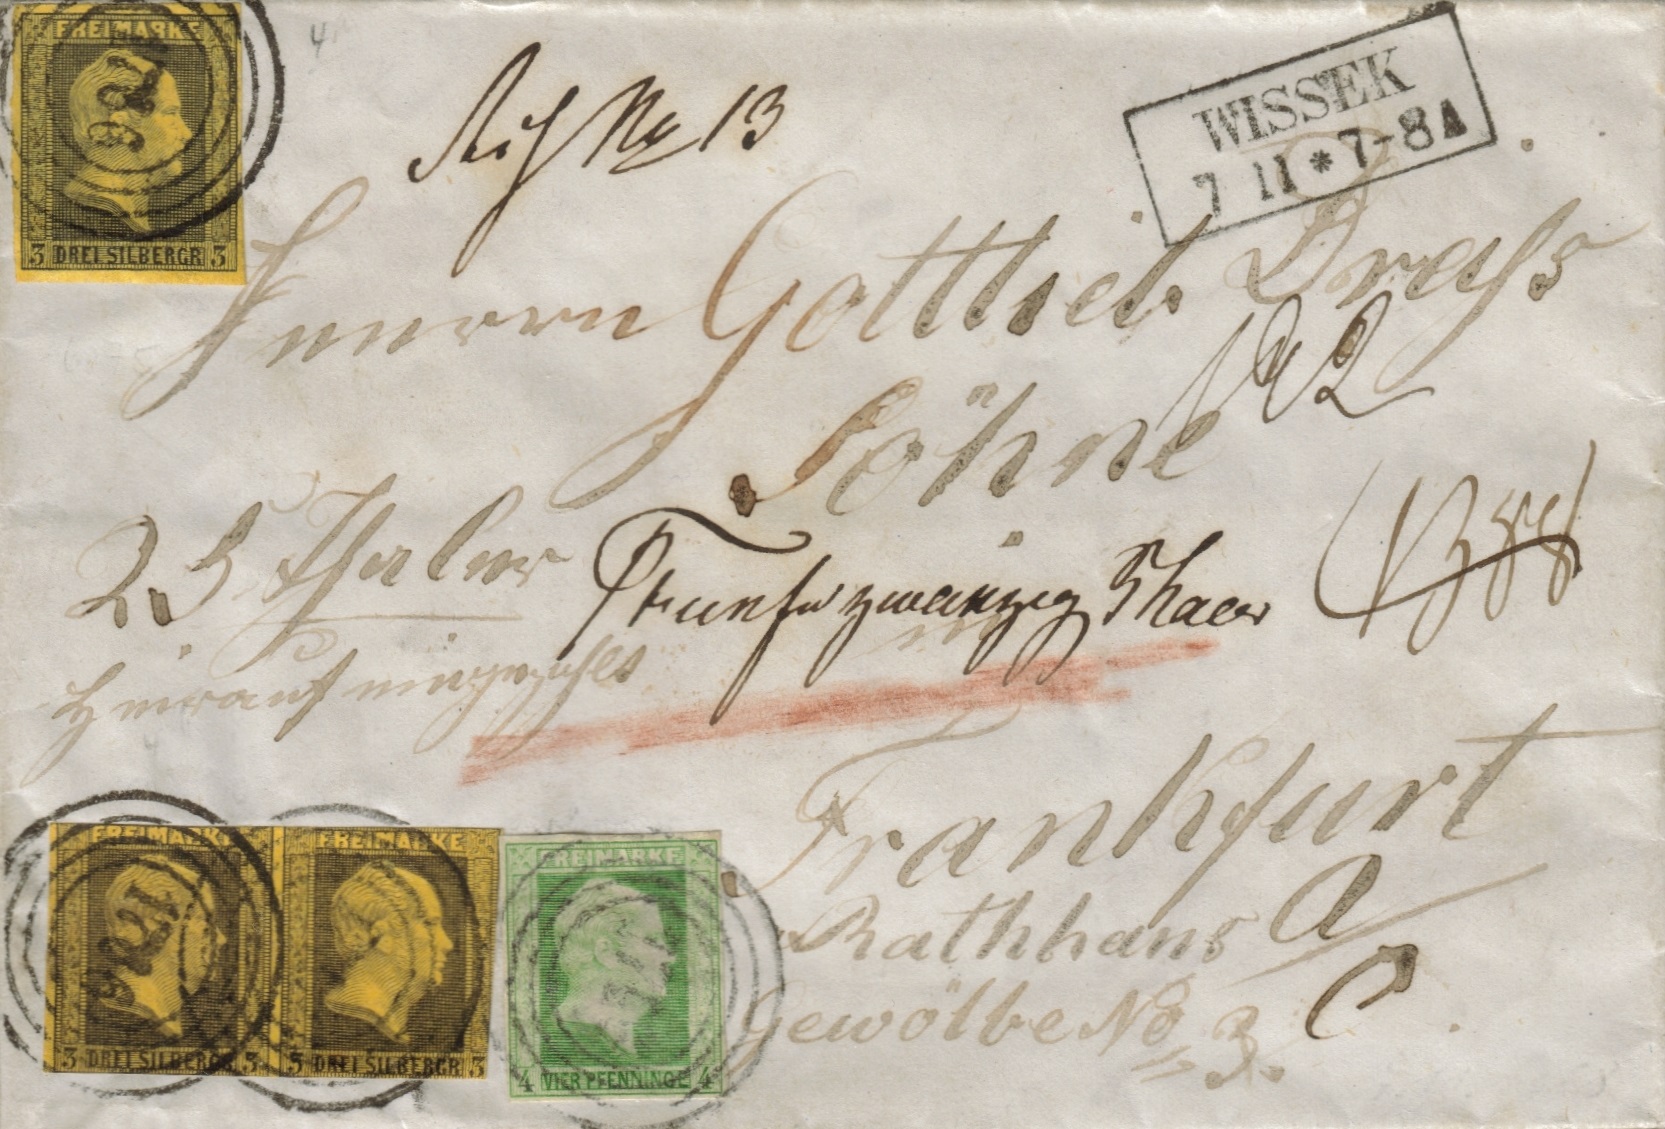 FREIMARKE
3 DREI SILBERGR 3
No 13
WISSEK
7 11 * 7-8 A
Herrn Gottlieb
Söhne
No 2
25 Thaler
Thaler
Hierauf eingezahlt
Frankfurt a/O
Rathhaus
Gewölbe No 3.
FREIMARKE
3 DREI SILBERGR 3
FREIMARKE
3 DREI SILBERGR 3
FREIMARKE
4 VIER PFENNINGE 4